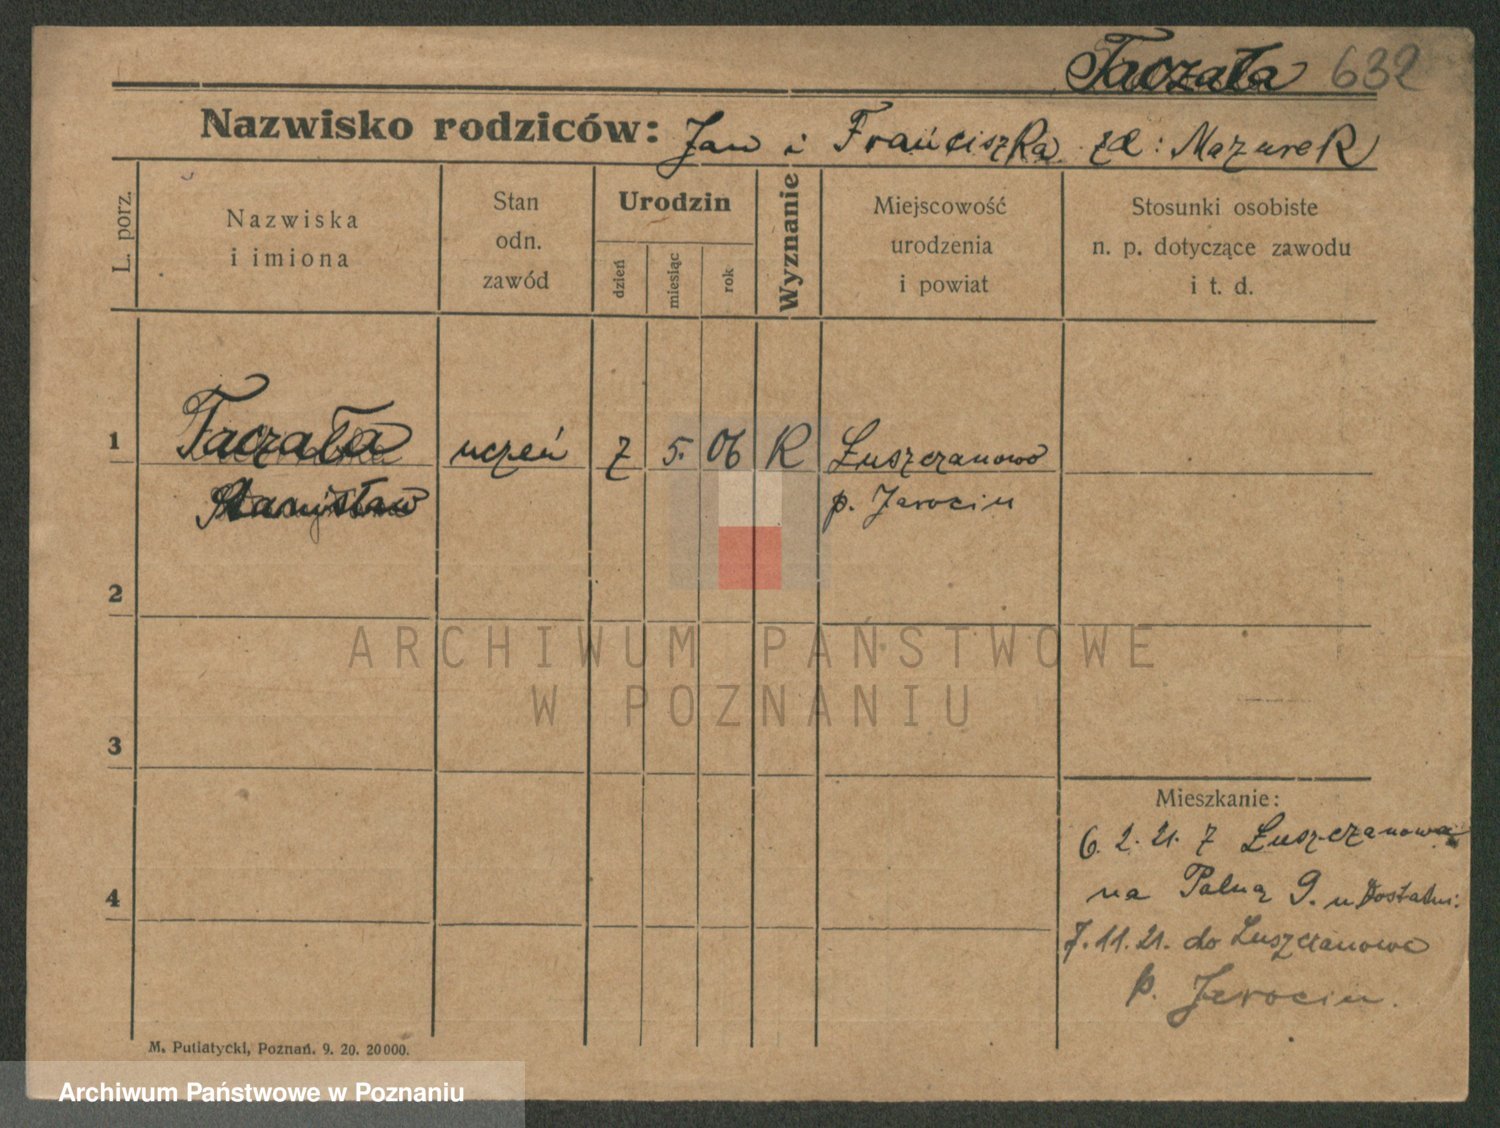 Taczała 632
Nazwisko rodziców: Jan i Franciszka zd: Mazurek
L. porz.
Nazwiska
i imiona
Stan
odn.
zawód
Urodzin
dzień
miesiąc
rok
Wyznanie
Miejscowość
urodzenia
i powiat
Stosunki osobiste
n. p. dotyczące zawodu
i t. d.
1 Taczała uczeń 7 5. 06 R Łuszczanowo
Stanisław p. Jarocin
2
ARCHIWUM PAŃSTWOWE
W POZNANIU
3
Mieszkanie:
6. 2. 21. z Łuszczanowa
4 na Polną 9. u
7. 11. 21. do Łuszczanowo
p. Jarocin.
M. Putiatycki, Poznań. 9. 20. 20000.
Archiwum Państwowe w Poznaniu